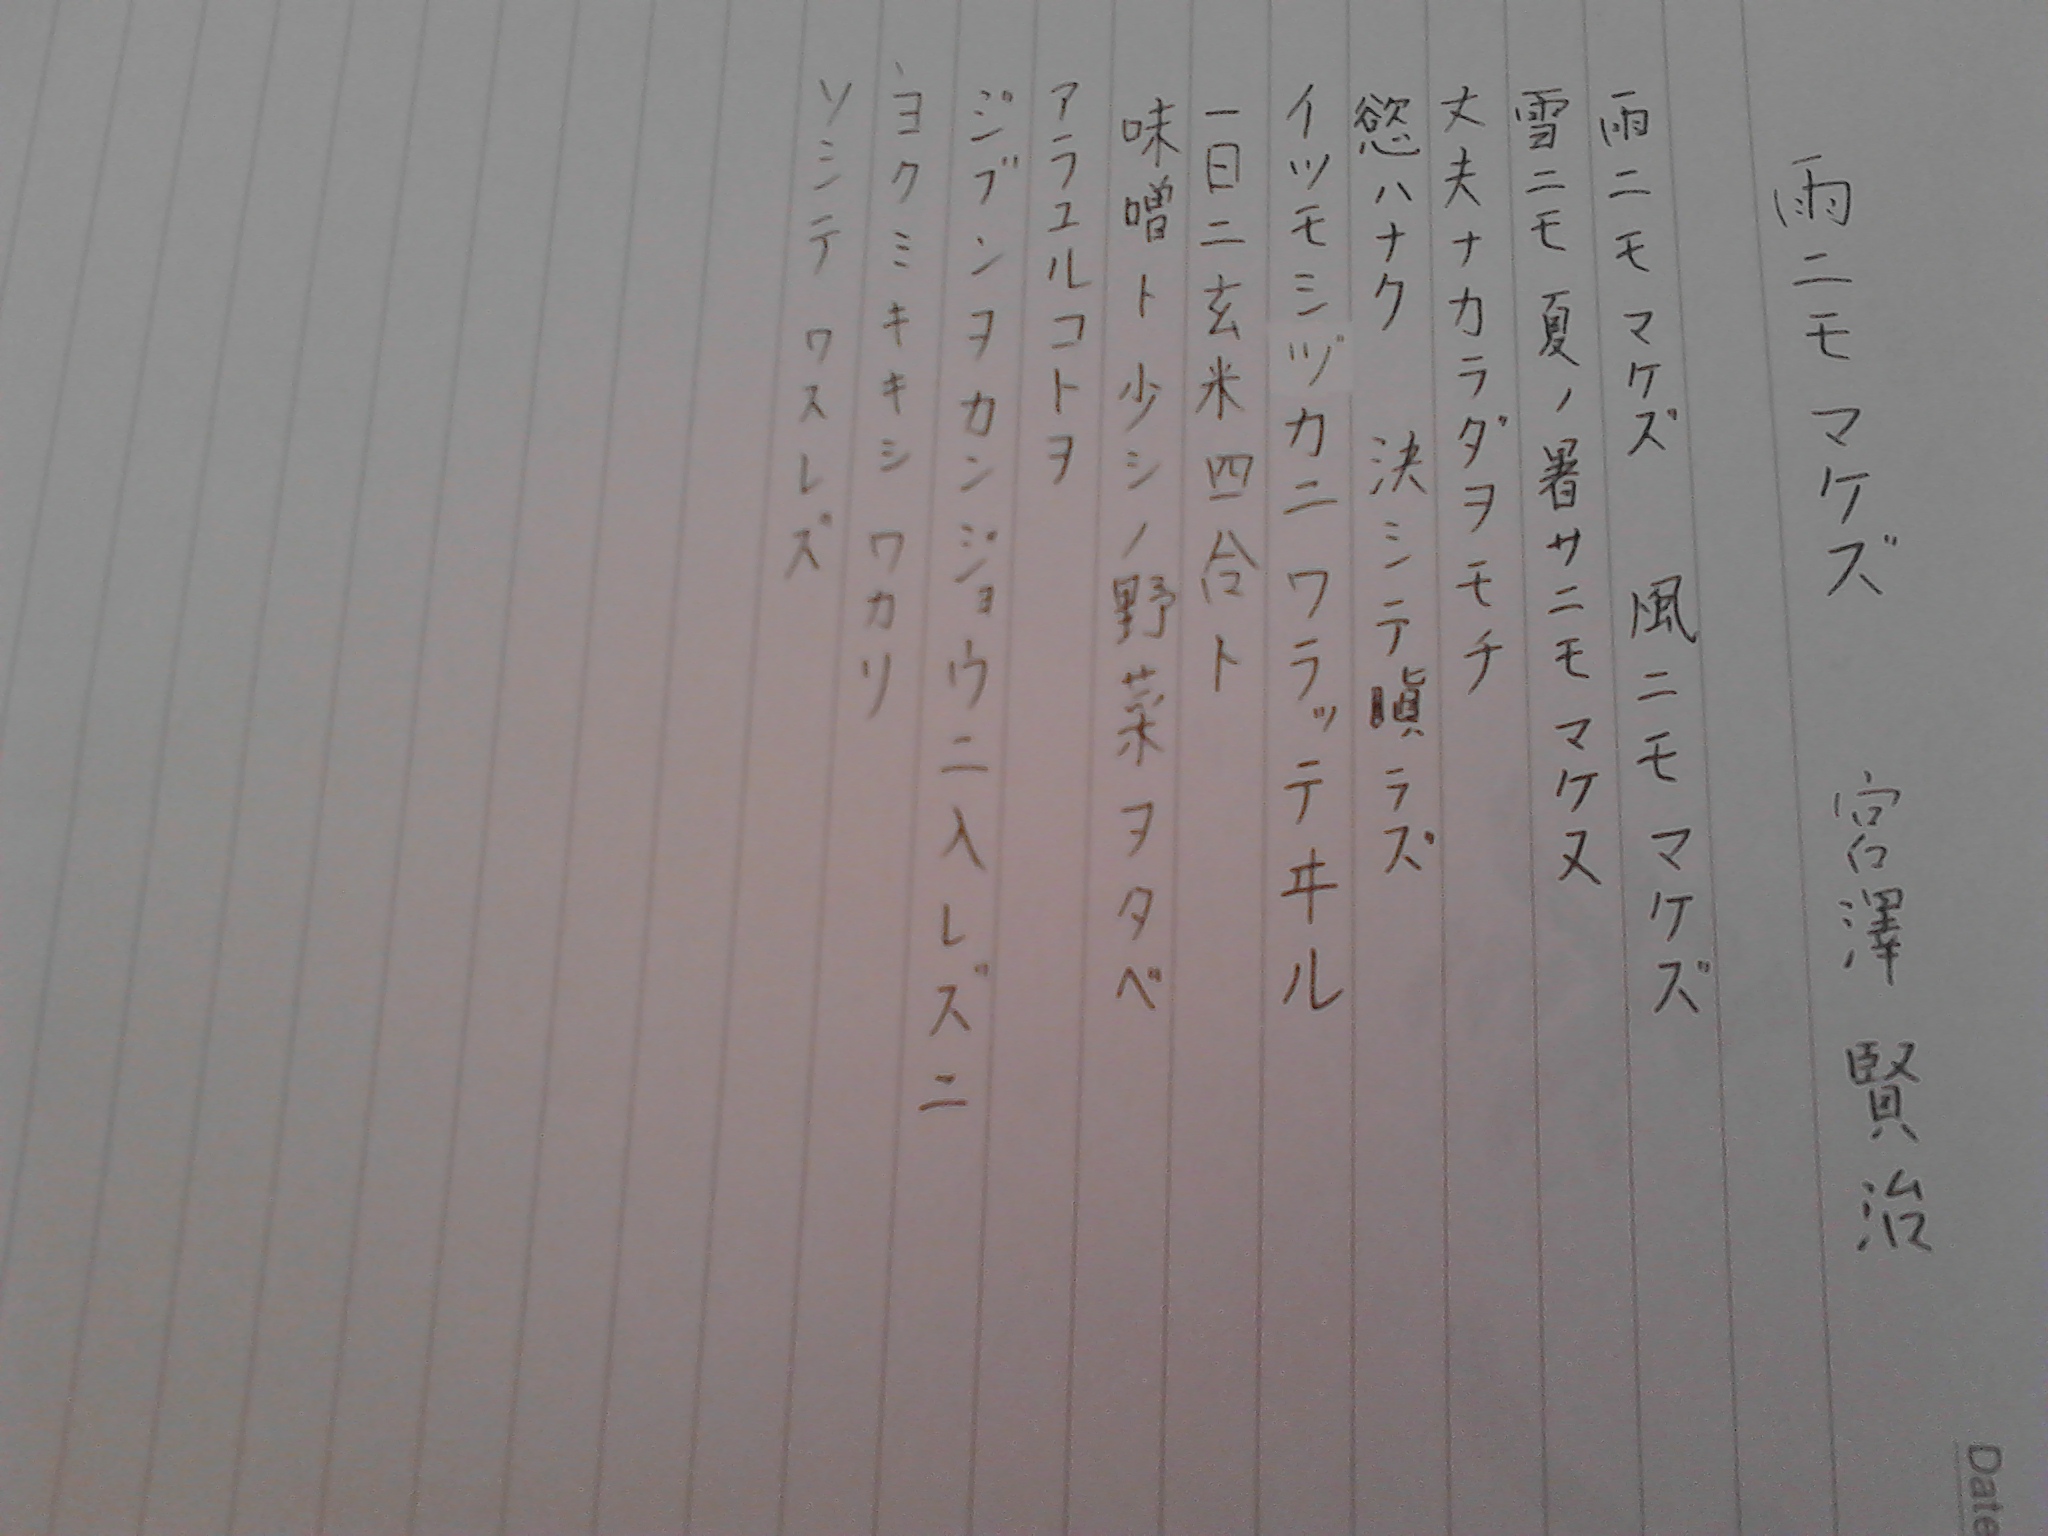 雨ニモマケズ 宮澤賢治
雨ニモマケズ 風ニモマケズ
雪ニモ夏ノ暑サニモマケヌ
丈夫ナカラダヲモチ
慾ハナク 決シテ瞋ラズ
イツモシヅカニワラッテヰル
一日ニ玄米四合ト
味噌ト少シノ野菜ヲタベ
アラユルコトヲ
ジブンヲカンジョウニ入レズニ
ヨクミキキシ ワカリ
ソシテ ワスレズ
Date